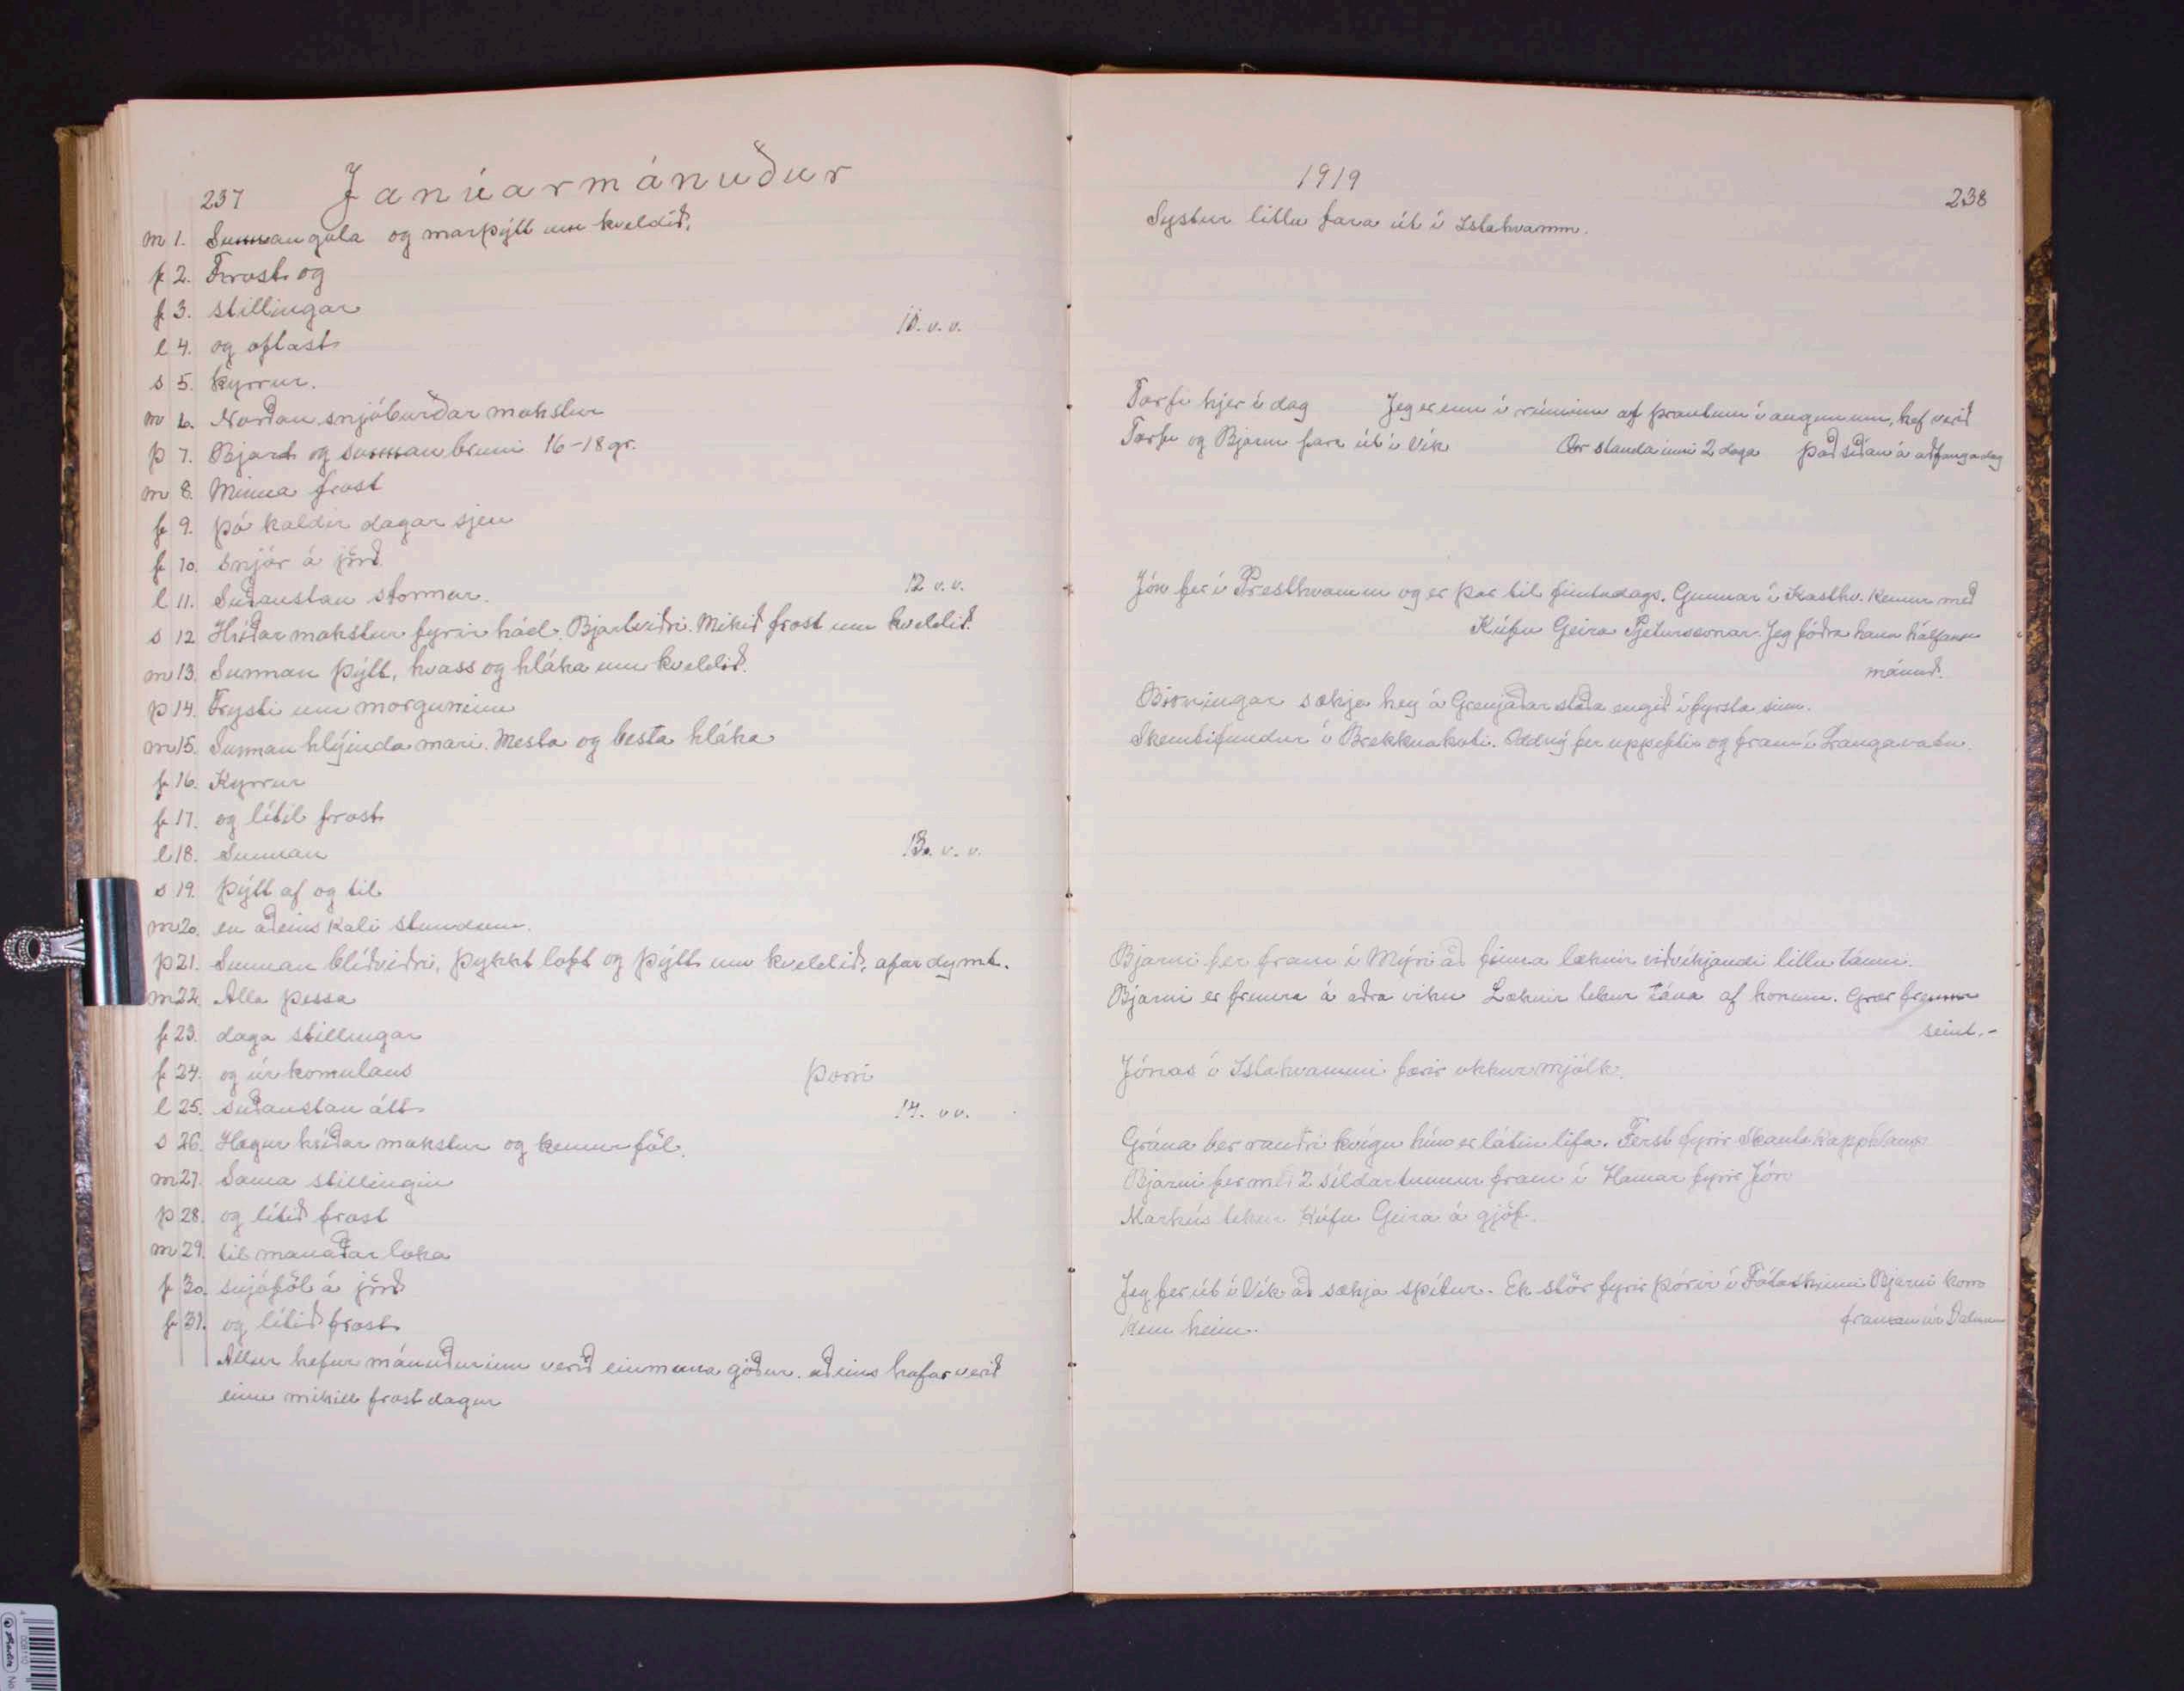 237 Janúarmánuður
m 1. Sunnan gola og marþýtt um kveldið.
f 2. Frost og
f 3. stillingar
11. v. v.
l 4. og oftast
s 5. kyrrur.
m 6. Norðan snjóburðar mokstur
þ 7. Bjart og sunnan bruni 16-18 gr.
m 8. Minna frost
f 9. þó kaldir dagar sjeu
f 10. snjór á jörð
l 11. Suðaustan stormur. 12 v. v.
s 12 Hríðar mokstur fyrir hád. Bjartviðri. Mikið frost um kveldið.
m 13. Sunnan þýtt, hvass og hláka um kveldið.
þ 14. Frysti um morguninn
m 15. Sunnan hlýinda mari. Mesta og besta hláka
f 16. Kyrrur
f 17. og lítil frost
l 18. Sunnan 13. v. v.
s 19. þýtt af og til
m 20. en aðeins kali stundum.
þ 21. Sunnan blíðviðri, þykkt loft og þýtt um kveldið, afar dymt.
m 22. Alla þessa
f 23. daga stillingar
f 24. og úrkomulaus þorri
l 25. suðaustan átt 14. v v.
s 26. Hægur hríðar mokstur og kemur föl.
m 27. Sama stillingin
þ 28. og lítið frost
m 29. til manaðar loka
f 30. snjóföl á jörð
f 31. og lítið frost
Allur hefur mánuðurinn verið einmuna góður. aðeins hafar verið
einn mikill frost dagur
1919 238
Systur litlu fara út í Ystahvamm.
Torfi hjer í dag Jeg er enn í rúminu af þrautum í augunum, hef verið
Torfi og Bjarni fara út í Vík Ær standa inni 2 daga það síðan á aðfangadag
Jón fer í Presthvamm og er þar til fimtudags. Gunnar í Kasthv. kemur með
Kúfu Geira Pjeturssonar. Jeg fóðra hana hálfann
mánuð.
Birningar sækja hey á Grenjaðarstaða engið í fyrsta sinn.
Skemtifundur í Brekknakoti. Oddný fer uppeftir og fram í Langavatn.
Bjarni fer fram í Mýri að finna læknir viðvíkjandi litlu tánni.
Bjarni er fremra á aðra viku Læknir tekur tána af honum. Grær fremur
seint.-
Jónas í Ystahvammi færir okkur mjólk.
Grána ber rauðri kvígu hún er látin lifa. Ferst fyrir Skauta Kapphlaup
Bjarni fer með 2 síldartunnur fram í Hamar fyrir Jón
Markús tekur Kúfu Geira á gjöf.
Jeg fer út í Vík að sækja spítur. Ek stör fyrir þórir í Fótaskinni Bjarni kom
kem heim. framan úr Dalnum